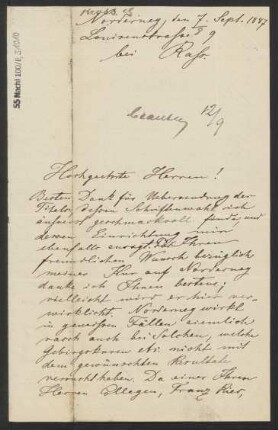 Norderney, den 7. Sept. 1887
Louisenstrasse 9
bei Rass
12/9
Hochgeehrte Herren!
Besten Dank für Uebersendung des
Titels, dessen Schriftenwahl ich
äusserst geschmackvoll finde, und
deren Einrichtung mir
ebenfalls zusagt. Ihren
freundlichen Wunsch bezüglich
meiner Kur auf Norderney
danke ich Ihnen bestens;
vielleicht wird er hier ver-
wirklicht. Norderney wirkt
in gewissen Fällen ziemlich
rasch auch bei Solchen, welche
Gebirgskuren etc. nicht mit
dem gewünschten Resultate
versucht haben. Da einer Ihrer
Herren Collegen, Franz